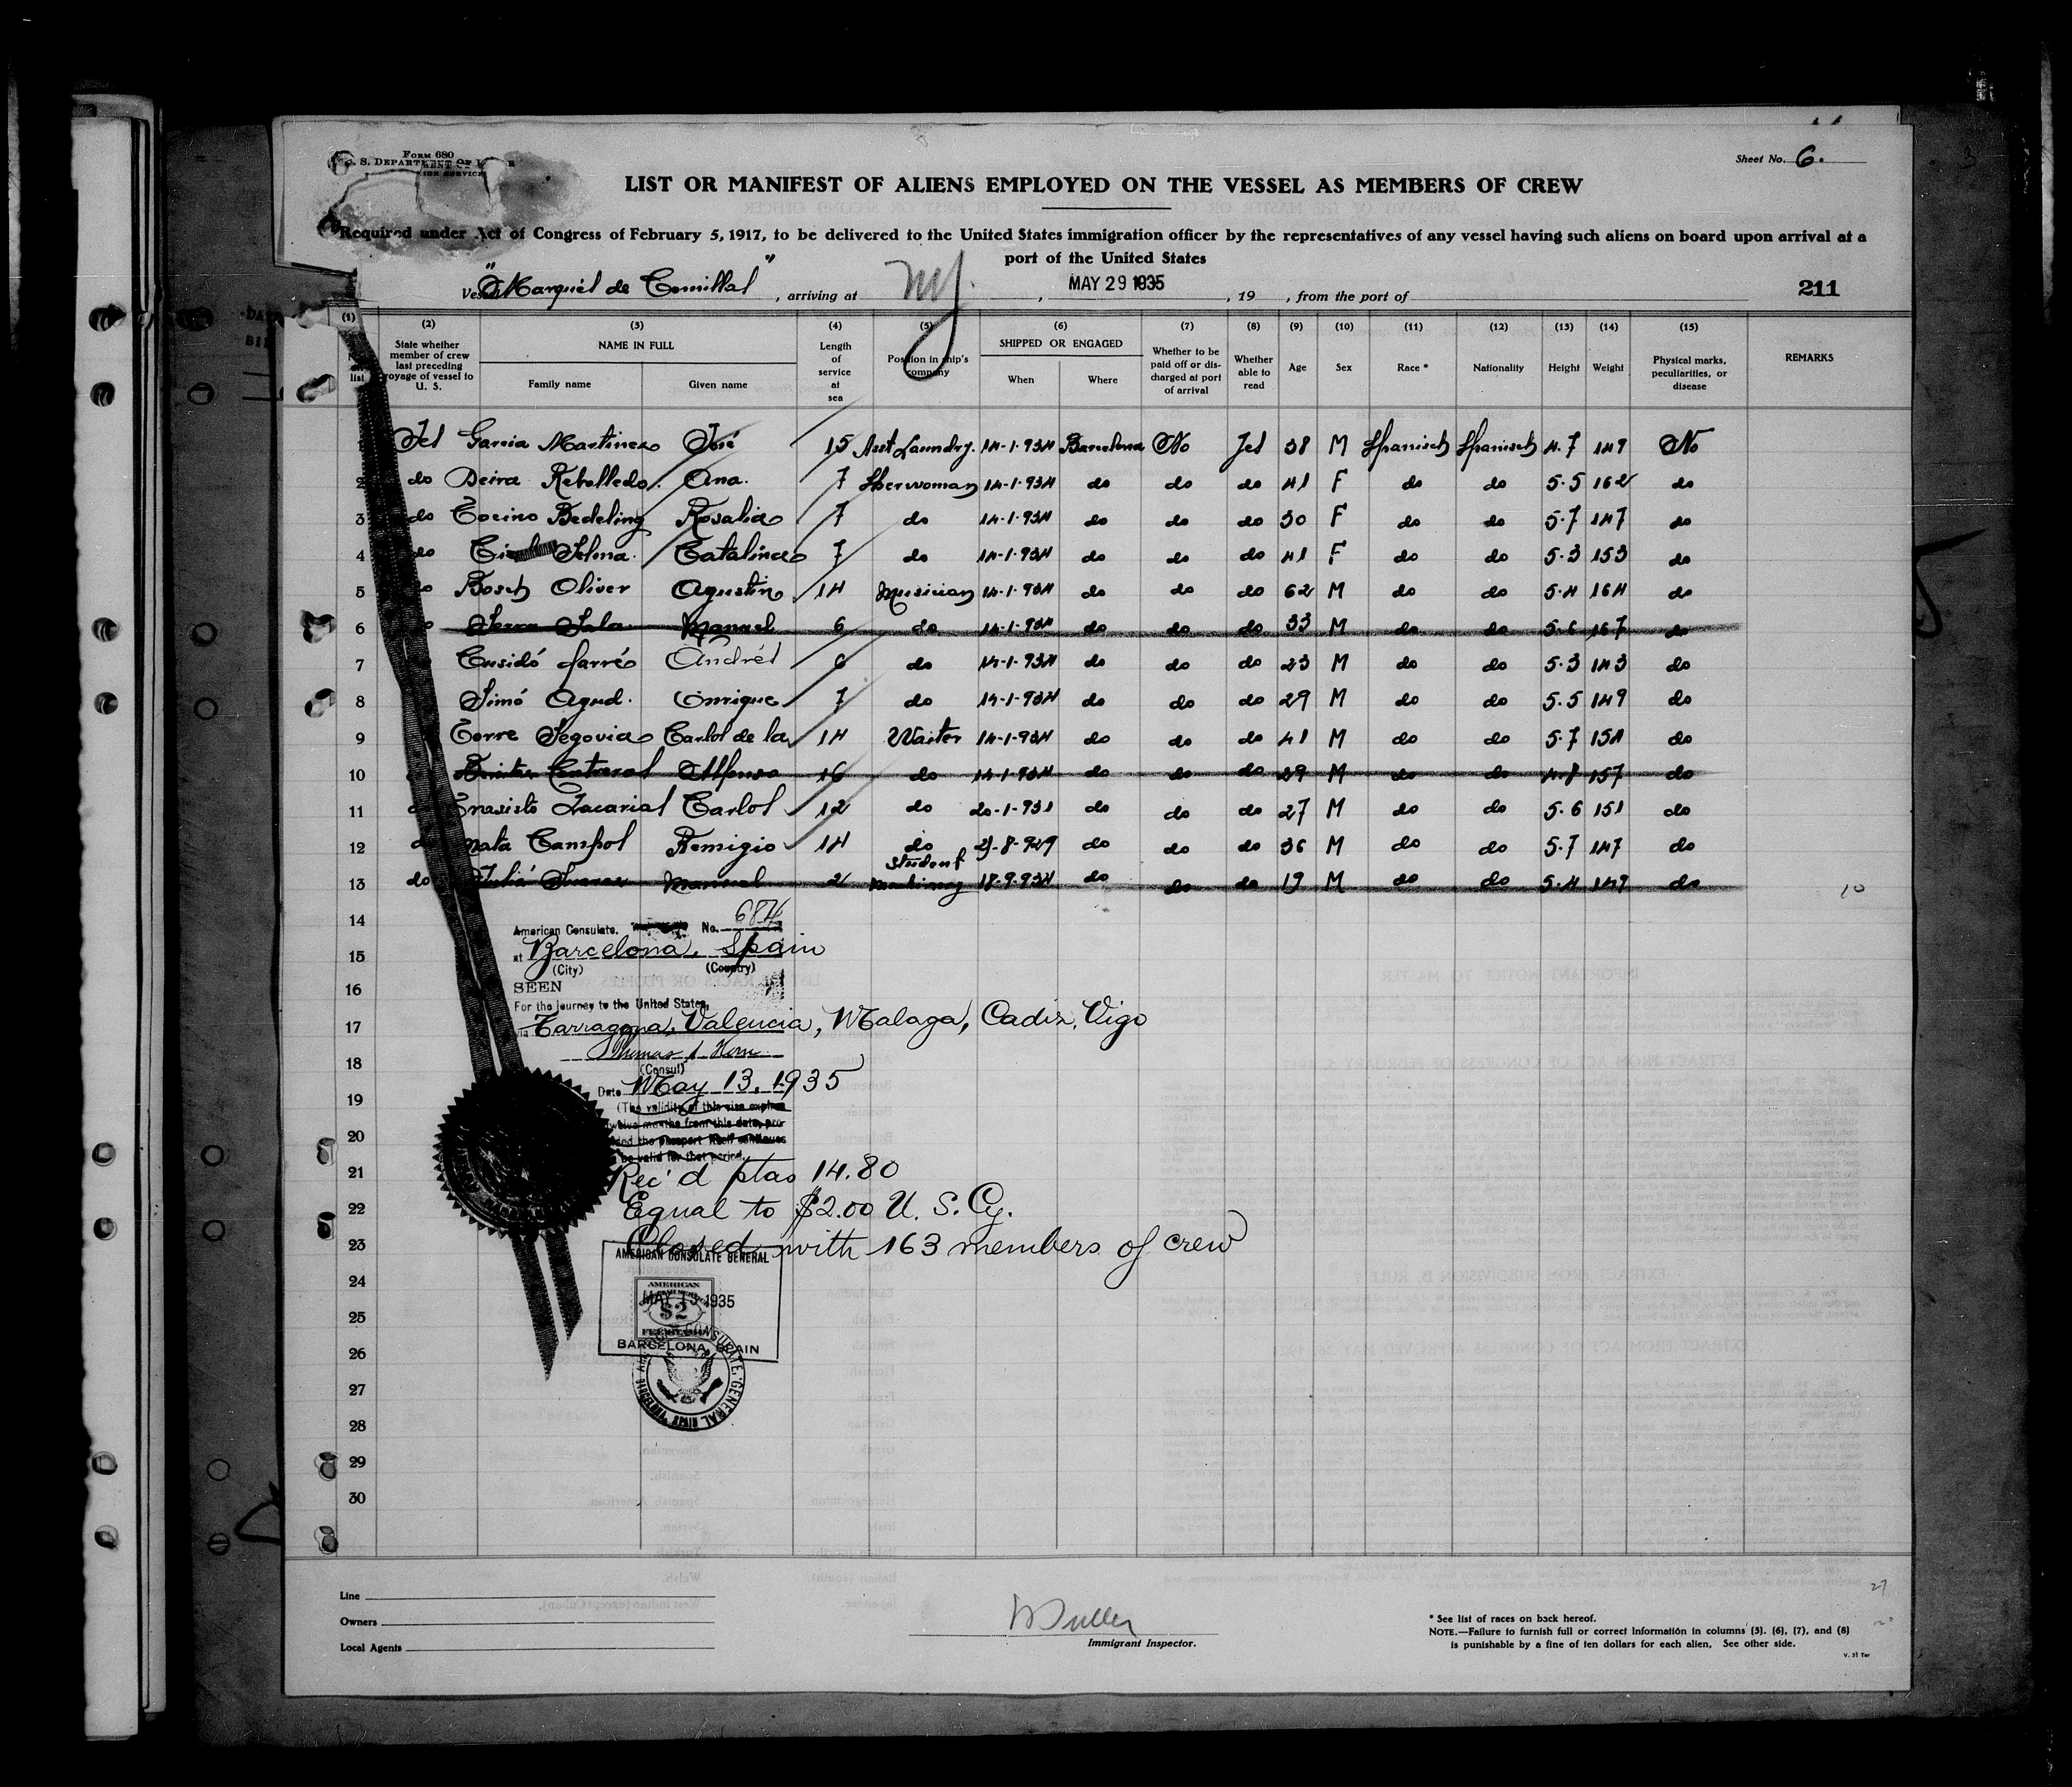 Form 680
U. S. DEPARTMENT OF
Sheet No. 6.
LIST OR MANIFEST OF ALIENS EMPLOYED ON THE VESSEL AS MEMBERS OF CREW
Required under Act of Congress of February 5, 1917, to be delivered to the United States immigration officer by the representatives of any vessel having such aliens on board upon arrival at a
port of the United States
Vessel "Marqués de Comillas", arriving at NY., MAY 29 1935, 19 , from the port of
211
(1) (2) (3) (4) (5) (6) (7) (8) (9) (10) (11) (12) (13) (14) (15)
No. on list
State whether member of crew last preceding voyage of vessel to U. S.
NAME IN FULL
Family name Given name
Length of service at sea
Position in ship's company
SHIPPED OR ENGAGED
When Where
Whether to be paid off or discharged at port of arrival
Whether able to read
Age Sex Race * Nationality Height Weight
Physical marks, peculiarities, or disease
REMARKS
1 Yes Garcia Martinez José 15 Asst Laundry. 14-1-934 Barcelona No Yes 38 M Spanish Spanish 4.7 149 No
2 do Deira Rebolledo. Ana. 7 14-1-934 do do do 41 F do do 5.5 162 do
3 do Tocino Bedeling Rosalia 7 do 14-1-934 do do do 30 F do do 5.7 147 do
4 do Selma. Catalina 7 do 14-1-934 do do do 41 F do do 5.3 153 do
5 do Bosch Oliver Agustin 14 Musician 14-1-934 do do do 62 M do do 5.4 164 do
6 do Serra Sala Manuel 6 do 14-1-934 do do do 33 M do do 5.6 167 do
7 Cusidó farré Andrés 6 do 14-1-934 do do do 23 M do do 5.3 143 do
8 Simó Agud. Enrique 7 do 14-1-934 do do do 29 M do do 5.5 149 do
9 Torre Segovia Carlos de la 14 Waiter 14-1-934 do do do 41 M do do 5.7 154 do
10 Alfonso 16 do 14-1-934 do do do 29 M do do 4.8 157 do
11 Carlos 12 do 20-1-931 do do do 27 M do do 5.6 151 do
12 Mata Campos Remigio 14 do 21-8-929 do do do 36 M do do 5.7 147 do
13 do Juliá Suarez Manuel 2 student 18-9-934 do do do 19 M do do 5.4 149 do
10
14
15
16
17
18
19
20
21
22
23
24
25
26
27
28
29
30
American Consulate. No. 684
at Barcelona, Spain
(City) (Country)
SEEN
For the journey to the United States,
via Tarragona, Valencia, Malaga, Cadiz, Vigo
Thomas Horn
(Consul)
Date May 13, 1935
(The validity of this visa expires
twelve months from this date, pro-
vided the passport itself continues
to be valid for that period.
Rec'd ptas 14.80
Equal to $2.00 U. S. Cy.
Closed with 163 members of crew
AMERICAN CONSULATE GENERAL
AMERICAN
MAY 13 1935
$2
BARCELONA, SPAIN
Line
Owners
Local Agents
Immigrant Inspector.
* See list of races on back hereof.
NOTE.—Failure to furnish full or correct information in columns (3), (6), (7), and (8)
is punishable by a fine of ten dollars for each alien. See other side.
27